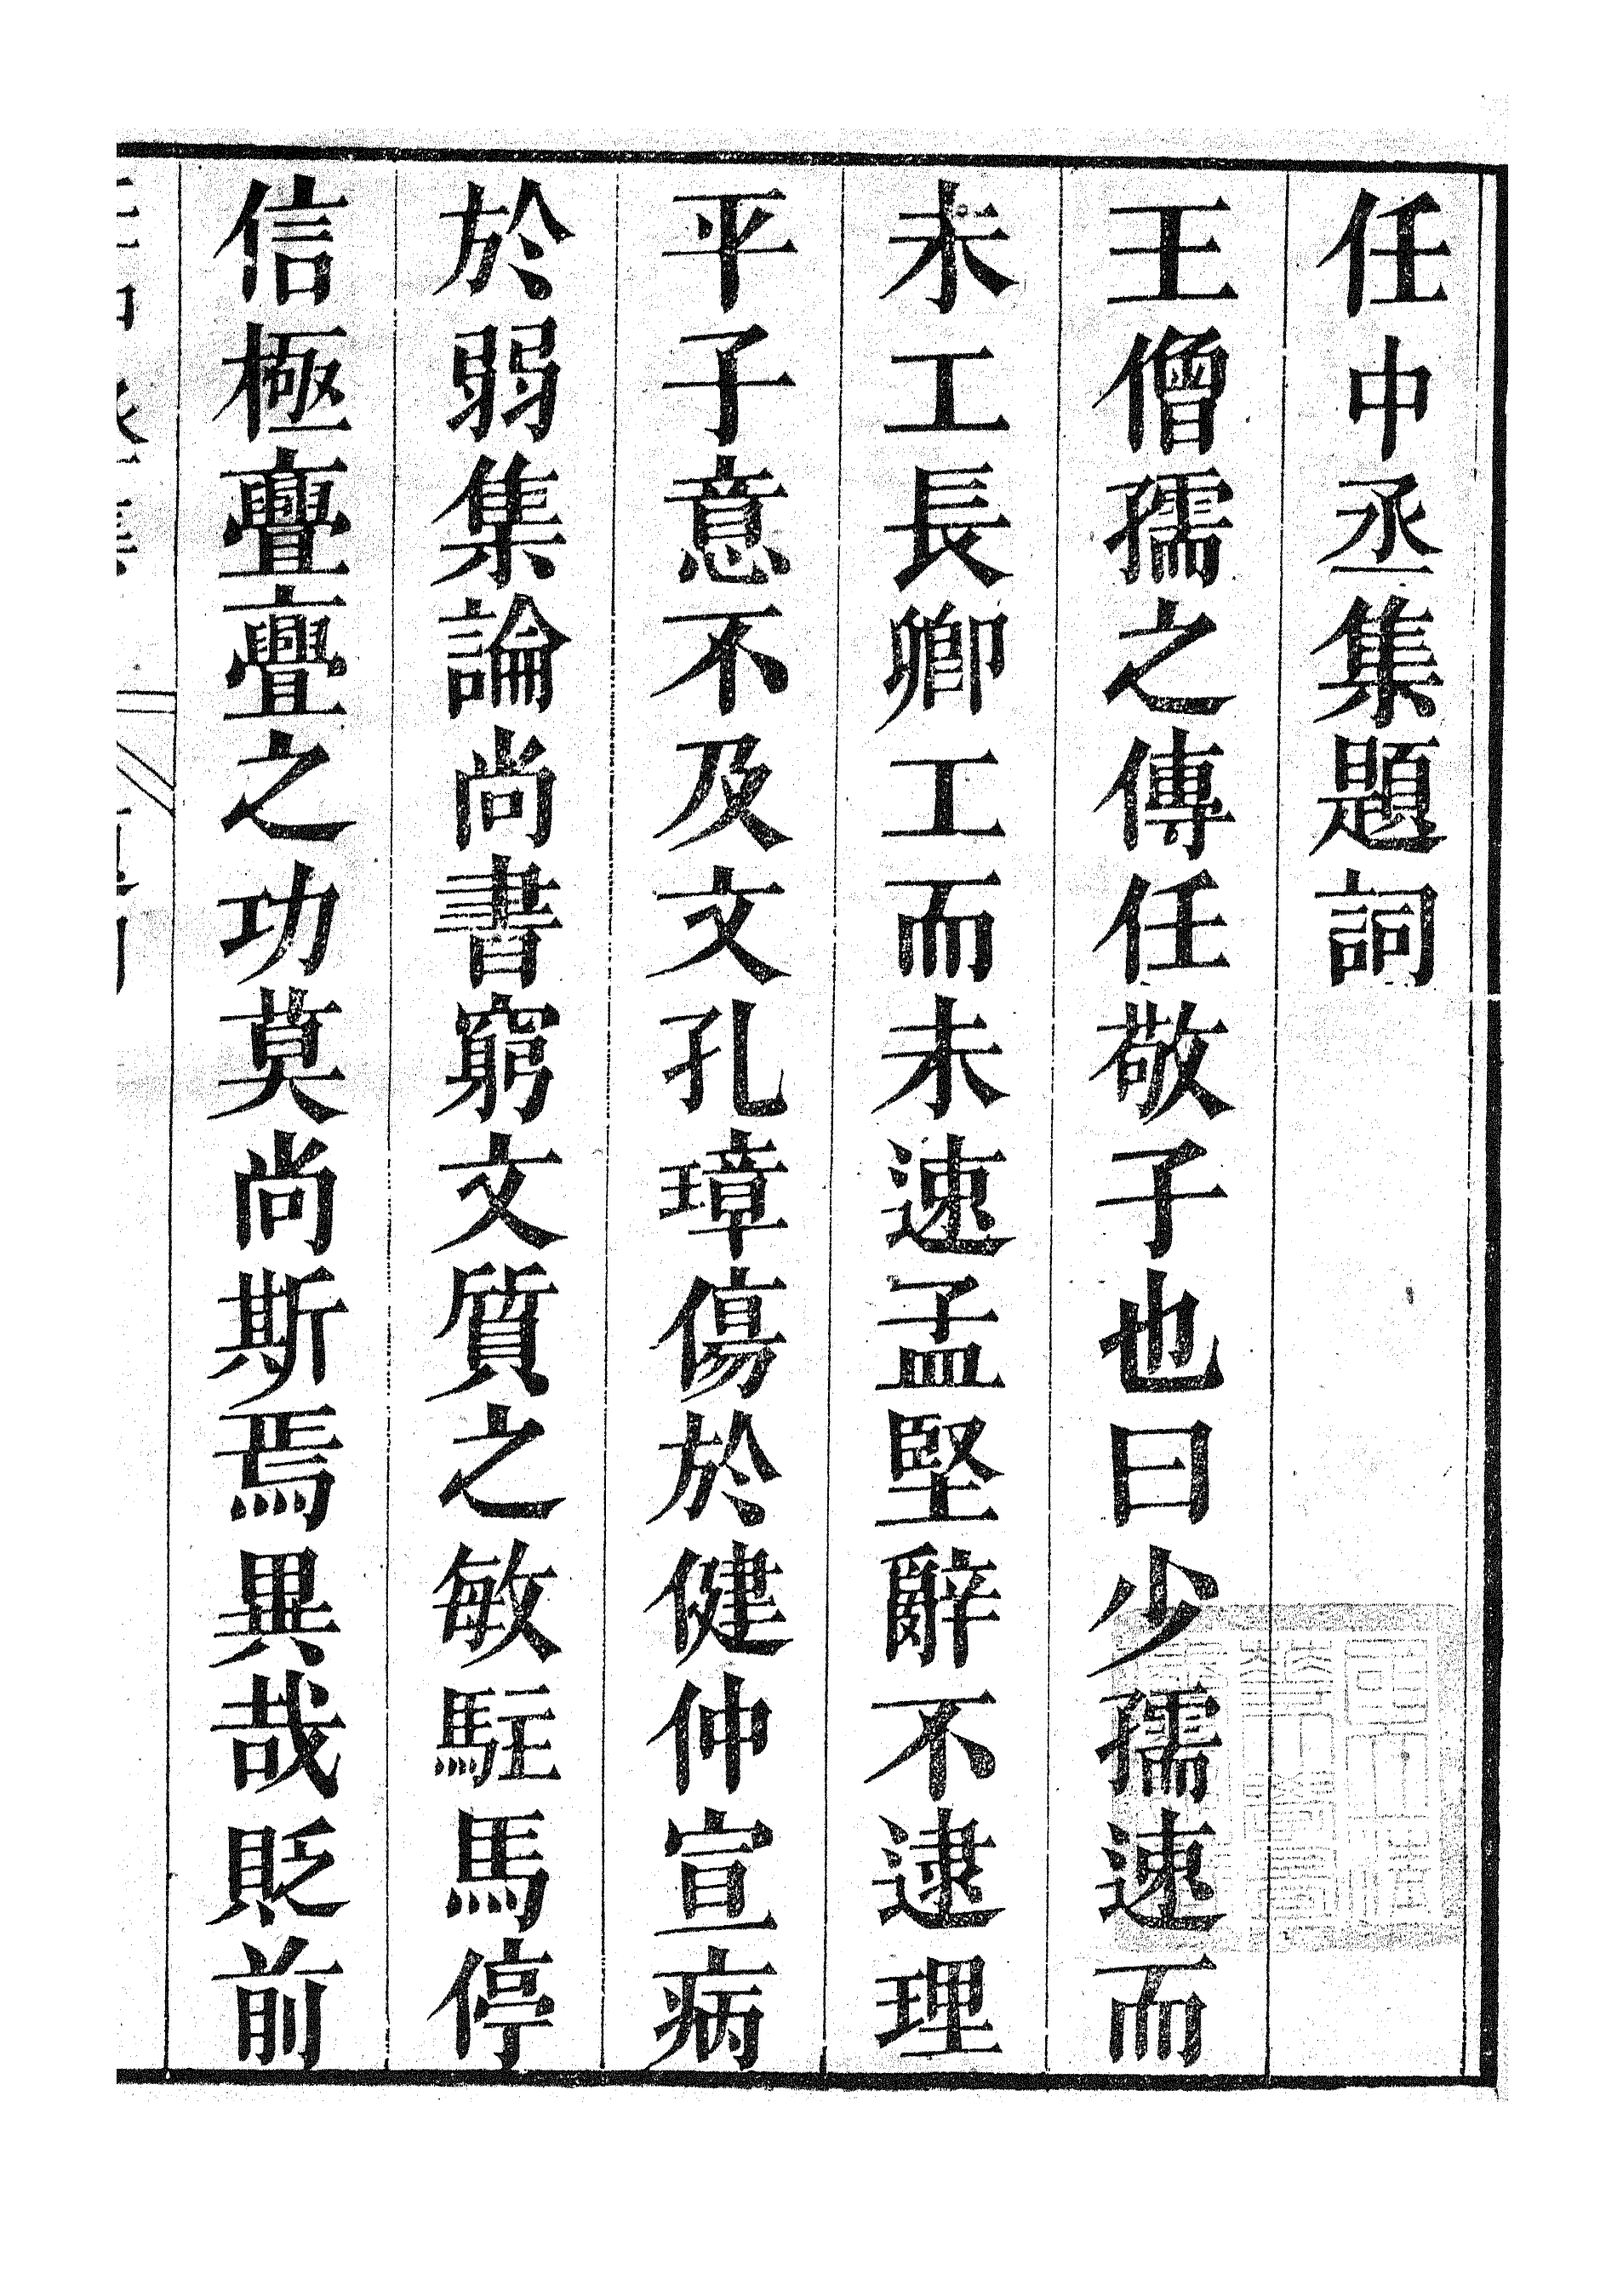 任中丞集題詞
王僧孺之傳任敬子也曰少孺速而
未工長卿工而未速孟堅辭不逮理
平子意不及文孔璋傷於健仲宣病
於弱集論尚書窮文質之敏駐馬停
信極亹亹之功莫尚斯焉異哉貶前